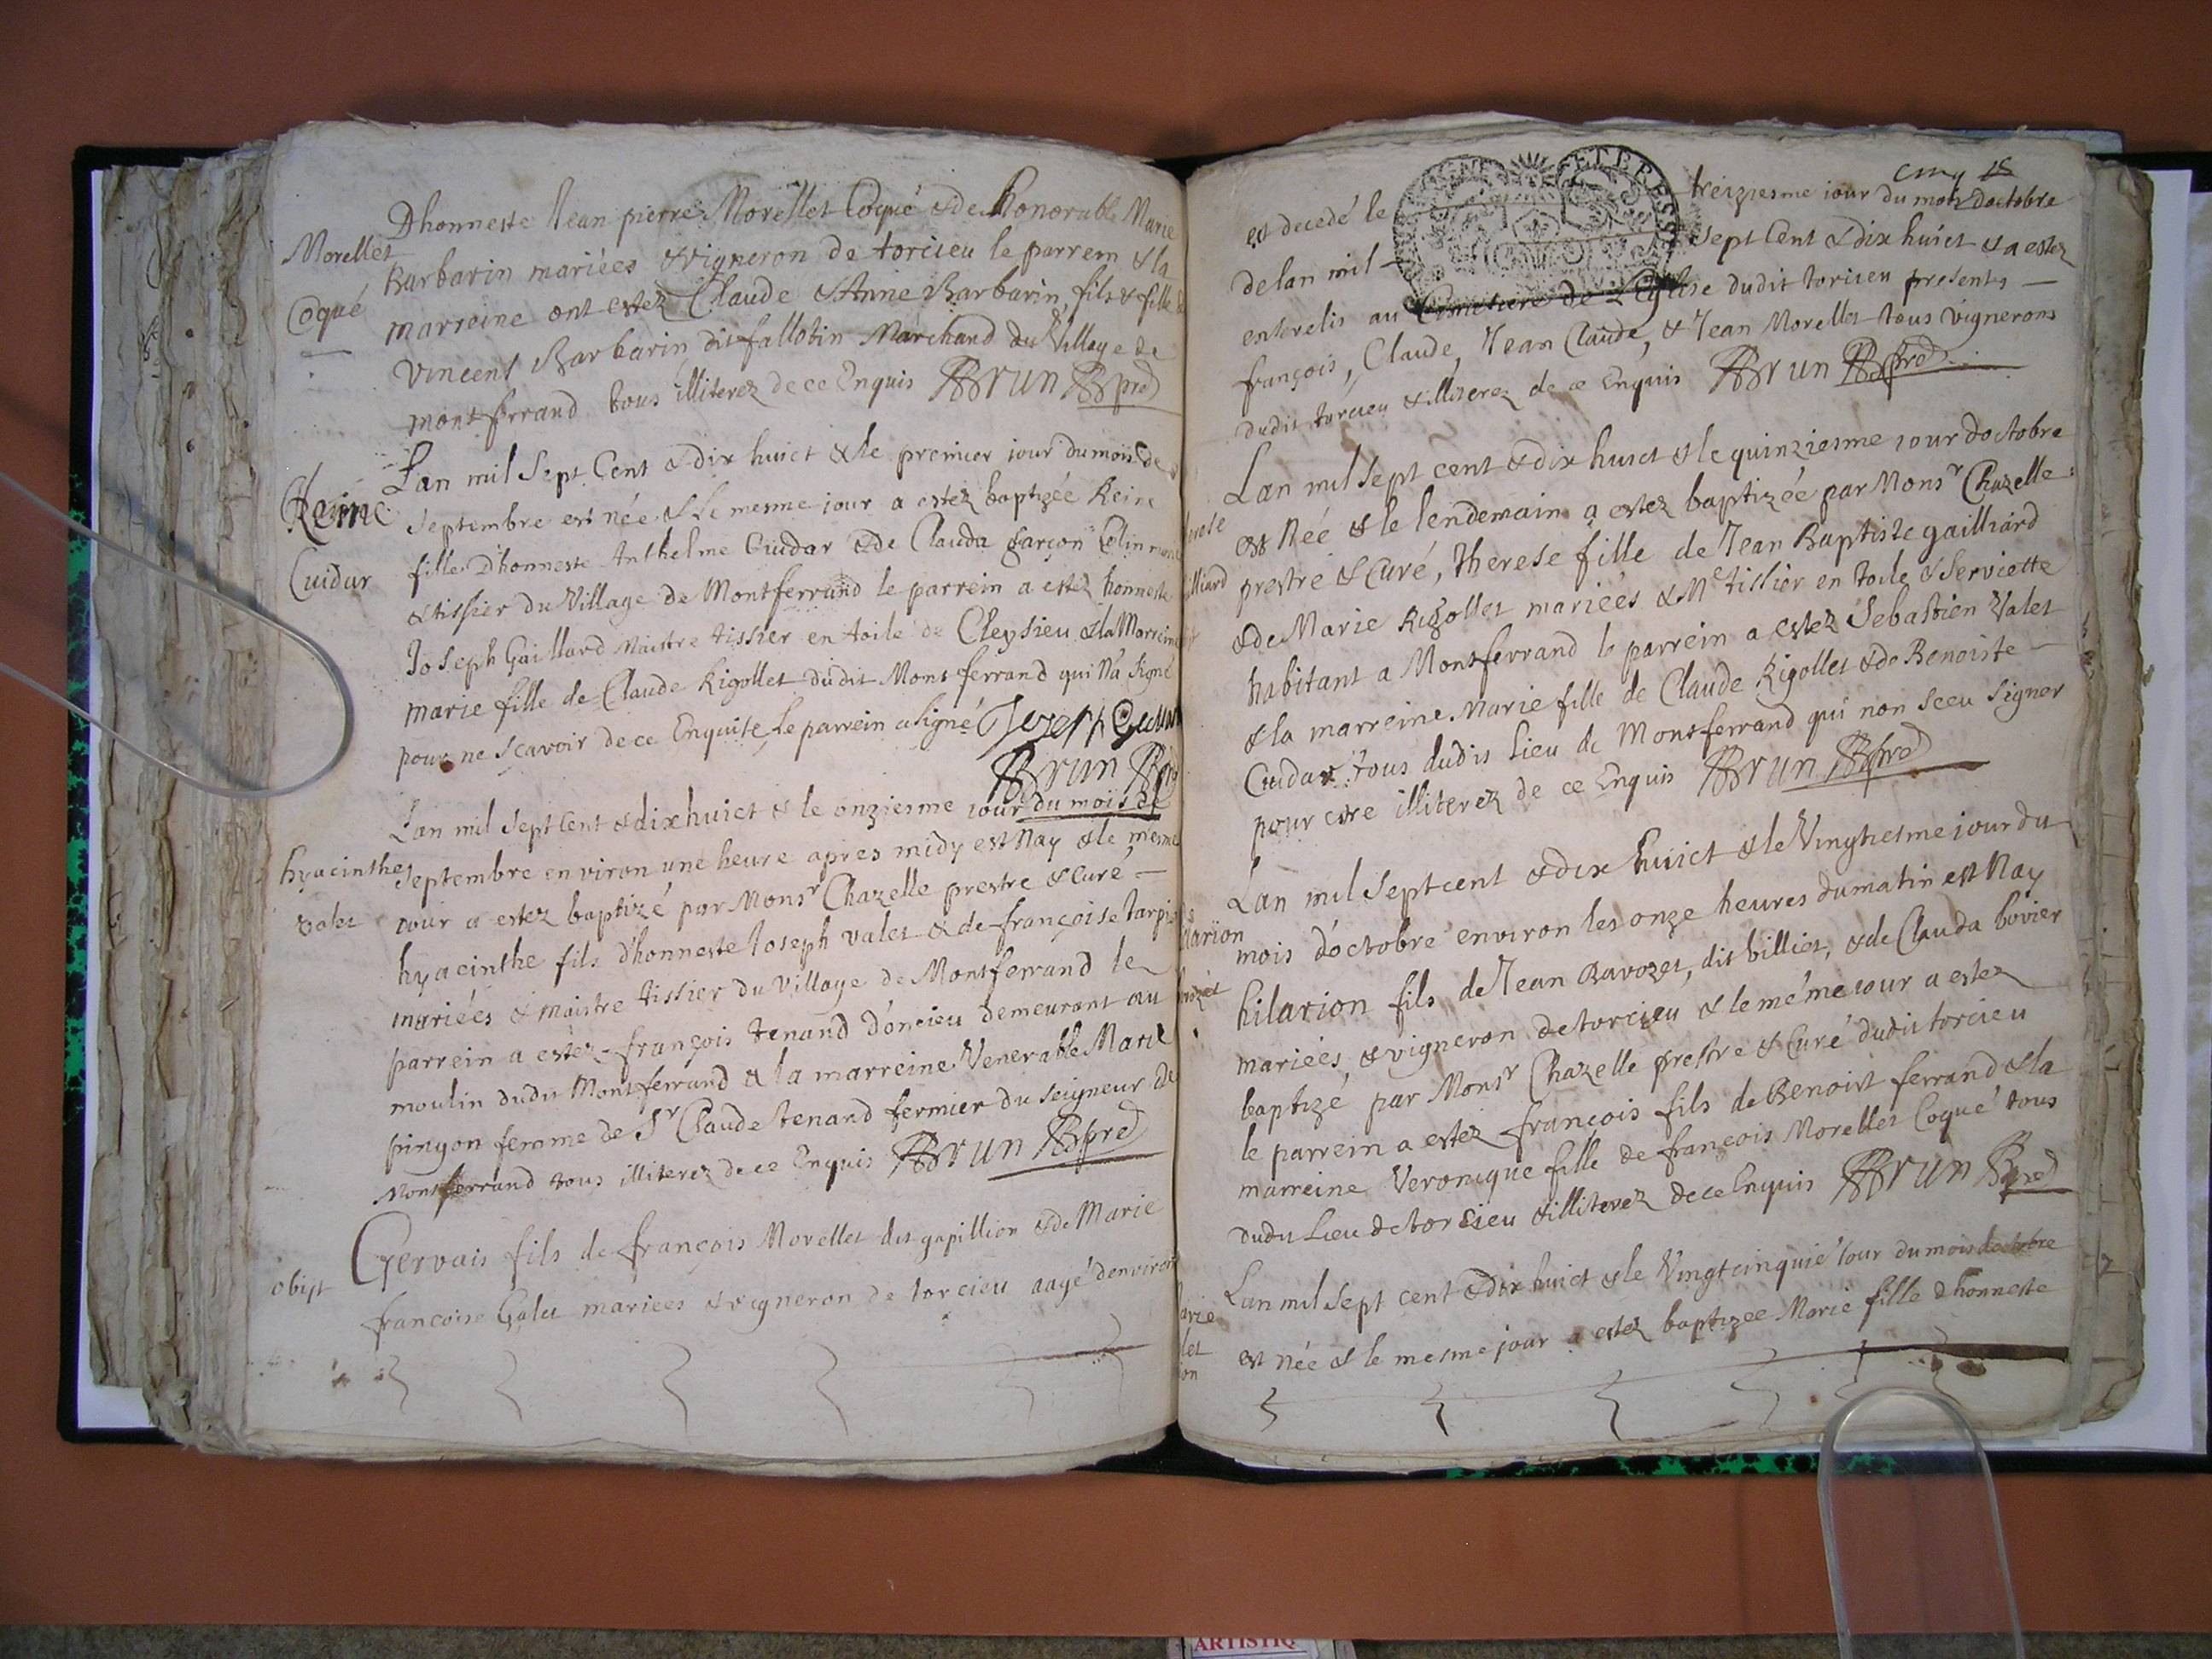 Dhonneste Jean pierre Morellet Coqué & de honorable Marie
Morellet
Barbarin mariées & vigneron de torcieu le parrein & la
Coqué
marreine ont estez Claude & Anne Barbarin, fils & fille de
Vincent Barbarin dit fallotin Marchand du Village de
montferrand tous illiterez de ce Enquis BRUN pre
Lan mil sept Cent & dix huict & le premier jour du mois de
Reine
Septembre est née & le mesme jour a estez baptizée Reine
Cuidar
fille Dhonneste Anthelme Cuidar & de Clauda garçon Colin
& tissier du Village de Montferrand le parrein a estez honneste
Joseph Gaillard Maistre tissier en toile de Cleysieu & la Marreine
marie fille de Claude Rigollet dudit Montferrand qui Na signé
pour ne scavoir de ce Enquise, Le parrein a signé Jozeph
BRUN
Lan mil sept Cent & dix huict & le onziesme jour du mois de
hyacinthe
Septembre environ une heure apres midy est Nay & le mesme
Valet
jour a estez baptizé par Monsr Chazelle prestre & Curé —
hyacinthe fils dhonneste Joseph valet & de françoise tarpin
mariées & maistre tissier du Village de Montferrand le
parrein a estez françois tenand d'oncieu demeurant au
moulin dudit Montferrand & la marreine Venerable Marie
pingon femme de Sr Claude tenand fermier du seigneur de
Montferrand tous illiterez de ce Enquis BRUN pre
Gervais fils de françois Morellet dit gapillion & de Marie
obijt
francoise Galet mariees & vigneron de torcieu aagé denviron
cinq
est decedé le treiziesme jour du mois doctobre
delan mil — sept Cent & dix huict & a estez
enterelis au Cimetiere de LEglise dudit torcieu presents —
françois, Claude, Jean Claude, & Jean Morellet tous vignerons
dudit torcieu & illiterez de ce Enquis BRUN pre
Lan mil sept cent & dix huict & le quinziesme jour doctobre
est Née & le lendemain a estez baptizée par Monsr Chazelle
prestre & Curé, Therese fille de Jean Baptiste gailliard
& de Marie Rigollet mariées & Me tissier en toile & Serviette
habitant a Montferrand le parrein a estez Sebastien Valet
& la marreine Marie fille de Claude Rigollet & de Benoiste —
Cuidar tous dudit lieu de Montferrand qui non sceu signer
pour etre illiterez de ce Enquis BRUN pre
Lan mil sept cent & dix huict & le Vingtiesme jour du
mois d'octobre environ les onze heures du matin est Nay
hilarion fils de Jean Ravozet, dit billiet, & de Clauda bovier
mariées & vigneron de torcieu & le méme jour a estez
baptizé par Monsr Chazelle prestre & Curé dudit torcieu
le parrein a estez françois fils de Benoist ferrand & la
marreine Veronique fille de françois Morellet Coqué tous
dudit Lieu de torcieu & illiterez de ce Enquis BRUN pre
Lan mil sept cent & dix huict & le Vingt cinquié jour du mois doctobre
est née & le mesme jour a estez baptizee Marie fille dhonneste
ARTISTIQ